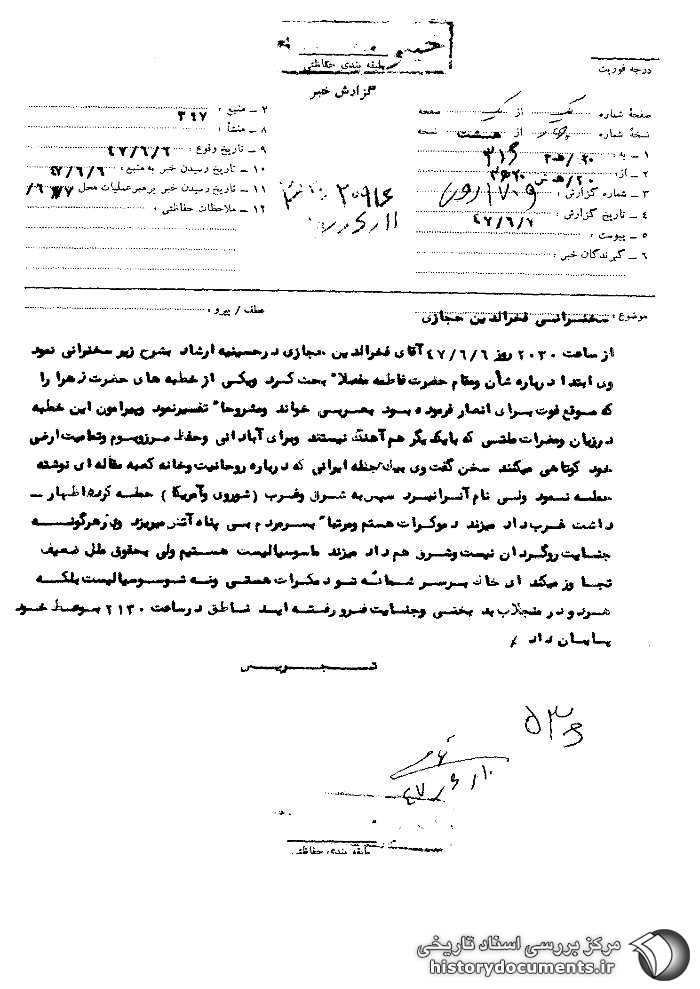 خیلی
طبقه بندی حفاظتی
درجه فوریت
گزارش خبر
صفحهٔ شماره یک از یک صفحه
نسخهٔ شماره از هشت نسخه
۱ – به : ۳۱۶
۲ – از : ۲۰/هـ
۳ – شماره گزارش :
۴ – تاریخ گزارش : ۴۷/۶/۷
۵ – پیوست :
۶ – گیرندگان خبر :
۷ – منبع : ۳۴۷
۸ – منشأ :
۹ – تاریخ وقوع : ۴۷/۶/۶
۱۰ – تاریخ رسیدن خبر به منبع : ۴۷/۶/۶
۱۱ – تاریخ رسیدن خبر برهبر عملیات محل ۶/۷
۱۲ – ملاحظات حفاظتی :
موضوع : سخنرانی فخرالدین حجازی
عطف / پیرو :
از ساعت ۲۰۳۰ روز ۴۷/۶/۶ آقای فخرالدین حجازی در حسینیه ارشاد بشرح زیر سخنرانی نمود
وی ابتدا درباره شأن ومقام حضرت فاطمه مفصلاً بحث کرد ویکی از خطبه های حضرت زهرا را
که موقع فوت برای انصار فرموده بود بعربی خواند ومشروحاً تفسیرنمود وپیرامون این خطبه
در زیان ومضرات ملتی که بایکدیگر هم آهنگ نیستند وبرای آبادانی وحفظ مرزوبوم وتمامیت ارضی
خود کوتاهی میکنند سخن گفت وی بیک مجله ایرانی که درباره روحانیت وخانه کعبه مقاله ای نوشته
حمله نمود ولی نام آنرا نبرد سپس به شرق وغرب (شوروی وآمریکا) حمله کرده اظهار –
داشت غرب داد میزند دموکرات هستم ومرتباً بسرمردم بی پناه آتش میریزد وازهرگونه
جنایت روگردان نیست وشرق هم داد میزند ماسوسیالیست هستیم ولی بحقوق ملل ضعیف
تجاوز میکند ای خاک برسر شما نه تو دمکرات هستی ونه تو سوسیالیست بلکه
هردو در منجلاب بدبختی وجنایت فرو رفته اید ناطق در ساعت ۲۱۳۰ بوعظ خود
پایان داد /
تجریش
۵۳۶
۴۷
طبقه بندی حفاظتی
مرکز بررسی اسناد تاریخی
historydocuments.ir